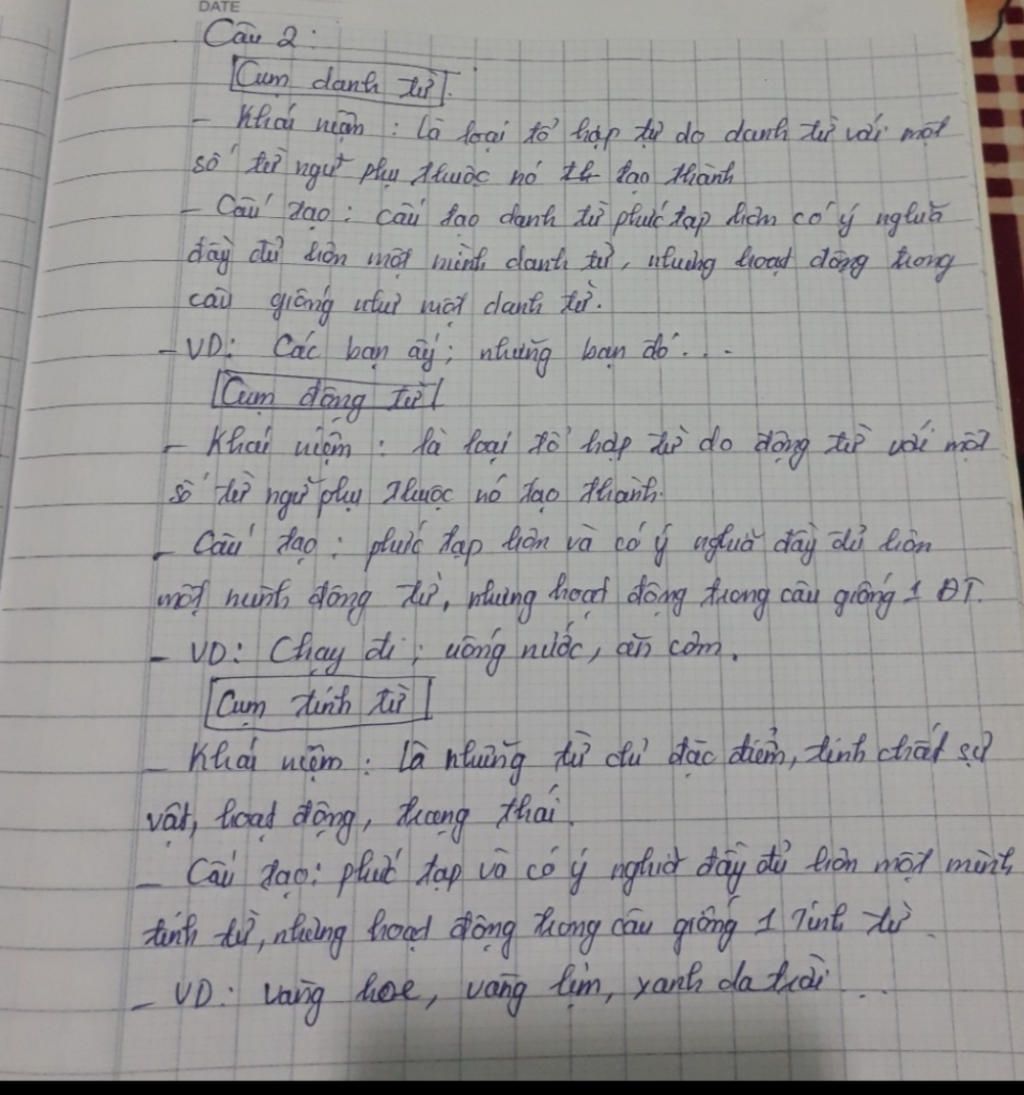 DATE
Câu 2:
Cụm danh từ.
- Khái niệm : là loại tổ hợp từ do danh từ với một
số từ ngữ phụ thuộc nó tạo thành
- Cấu tạo : cấu tạo danh từ phức tạp hơn có ý nghĩa
đầy đủ hơn một mình danh từ, nhưng hoạt động trong
câu giống như một danh từ.
- VD: Các bạn ấy; những bạn đó...
Cụm động từ
- Khái niệm : là loại tổ hợp từ do động từ với một
số từ ngữ phụ thuộc nó tạo thành.
- Cấu tạo : phức tạp hơn và có ý nghĩa đầy đủ hơn
một mình động từ, nhưng hoạt động trong câu giống 1 ĐT.
- VD: Chạy đi; uống nước, ăn cơm.
Cụm tính từ
- Khái niệm : Là những từ chỉ đặc điểm, tính chất sự
vật, hoạt động, trạng thái.
- Cấu tạo: phức tạp và có ý nghĩa đầy đủ hơn một mình
tính từ, nhưng hoạt động trong câu giống 1 Tính từ
- VD: vàng hoe, vàng lịm, xanh da trời...